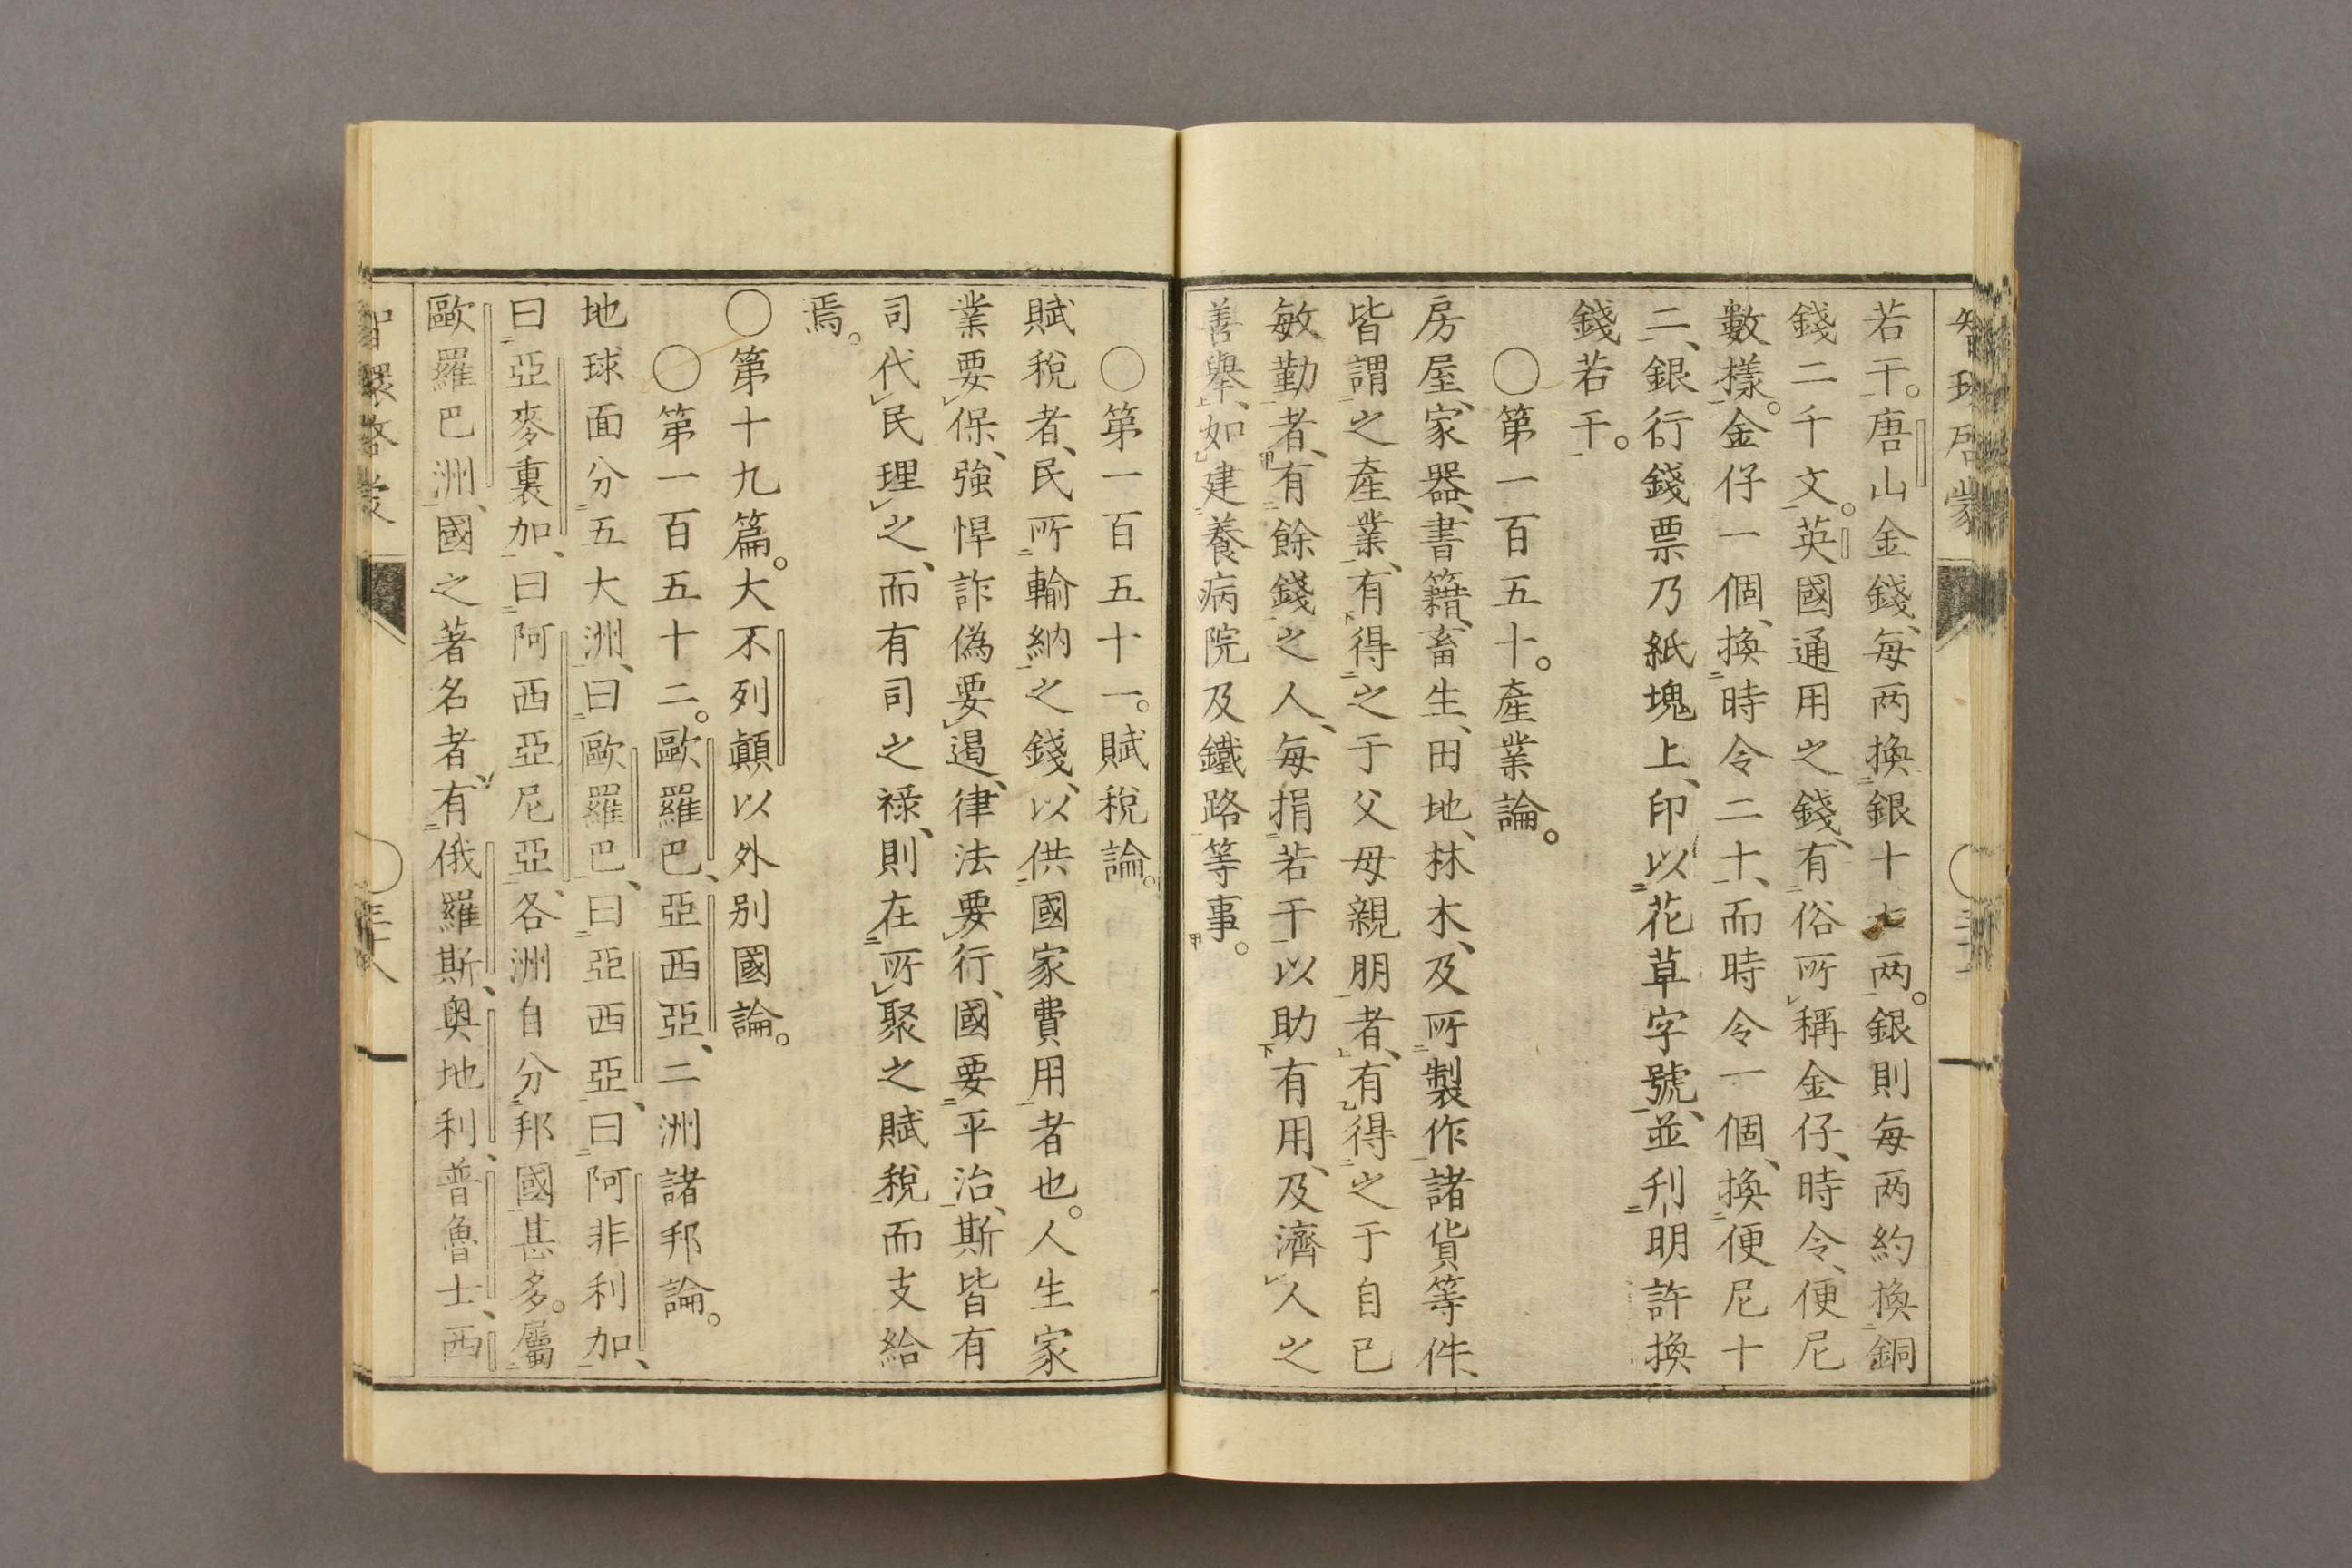 若干。唐山金錢、每两換銀十七两。銀則每两約換銅
錢二千文。英國通用之錢、有俗所稱金仔、時令、便尼
數樣。金仔一個、換時令二十、而時令一個、換便尼十
二、銀行錢票乃紙塊上、印以花草字號、並刋明許換
錢若干。
〇第一百五十。產業論。
房屋、家器、書籍、畜生、田地、林木、及所製作諸貨等件、
皆謂之產業、有得之于父母親朋者、有得之于自己
敏勤者、有餘錢之人、每捐若干以助有用、及濟人之
善舉、如建養病院及鐵路等事。
〇第一百五十一。賦稅論。
賦稅者、民所輸納之錢、以供國家費用者也。人生家
業要保、強悍詐偽要遏、律法要行、國要平治、斯皆有
司代民理之、而有司之祿、則在所聚之賦稅而支給
焉。
〇第十九篇。大不列顛以外別國論。
〇第一百五十二。歐羅巴、亞西亞、二洲諸邦論。
地球面分五大洲、曰歐羅巴、曰亞西亞、曰阿非利加、
曰亞麥裏加、曰阿西亞尼亞、各洲自分邦國甚多。屬
歐羅巴洲、國之著名者、有俄羅斯、奥地利、普魯士、西